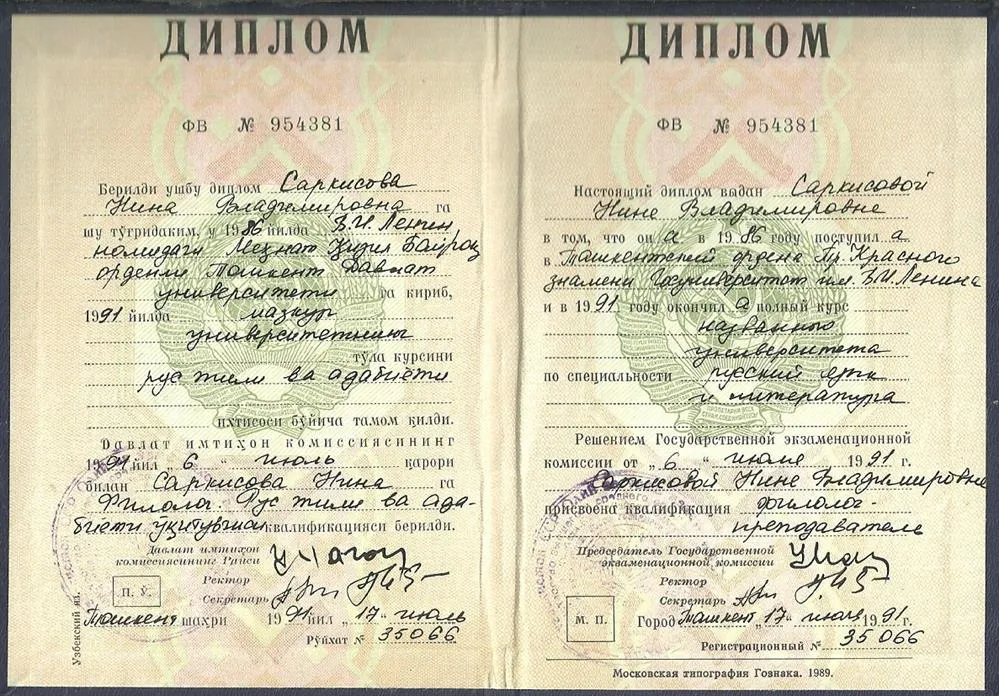 ДИПЛОМ
ФВ № 954381
Берилди ушбу диплом Саркисова
Нина Владимировна га
шу тўғридаким, у 1986 йилда В.И. Ленин
номидаги Меҳнат Қизил Байроқ
орденли Тошкент Давлат
университети га кириб,
1991 йилда мазкур
университетнинг
тўла курсини
рус тили ва адабиёти
ихтисоси бўйича тамом қилди.
Давлат имтиҳон комиссиясининг
1991 йил „6“ июль қарори
билан Саркисова Нина га
Филолог. Рус тили ва ада-
биёти ўқитувчиси квалификацияси берилди.
Давлат имтиҳон
комиссиясининг Раиси
Ректор
Секретарь
П. Ў.
Тошкент шаҳри 1991 йил „17“ июль
Рўйхат № 35066
Узбекский яз.
ДИПЛОМ
ФВ № 954381
Настоящий диплом выдан Саркисовой
Нине Владимировне
в том, что он а в 1986 году поступил а
в Ташкентский ордена Тр. Красного
знамени Госуниверситет им. В.И. Ленина
и в 1991 году окончил а полный курс
названного
университета
по специальности русский язык
и литература
Решением Государственной экзаменационной
комиссии от „6“ июля 1991 г.
Саркисовой Нине Владимировне
присвоена квалификация филолог-
преподаватель
Председатель Государственной
экзаменационной комиссии
Ректор
Секретарь
М. П.
Город Ташкент „17“ июля 1991 г.
Регистрационный № 35066
Московская типография Гознака. 1989.